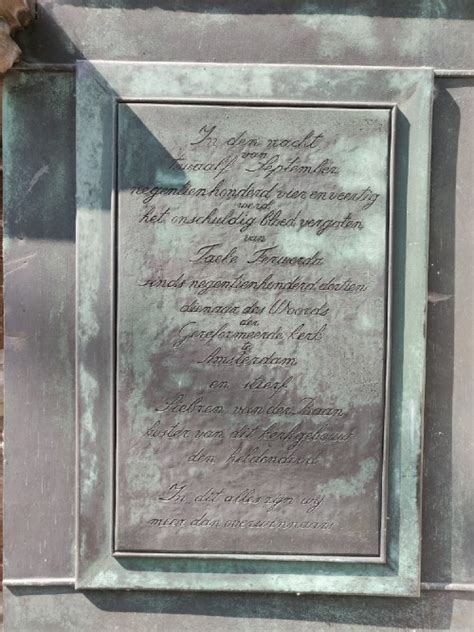 In den nacht
van
twaalf September
negentienhonderd vier en veertig
werd
het onschuldig bloed vergoten
van
Taeke Ferwerda
sinds negentienhonderd dertien
dienaar des Woords
der
Gereformeerde kerk
te
Amsterdam
en stierf
Siebren van der Baan
koster van dit kerkgebouw
den heldendood.
In dit alles zijn wij
meer dan overwinnaars